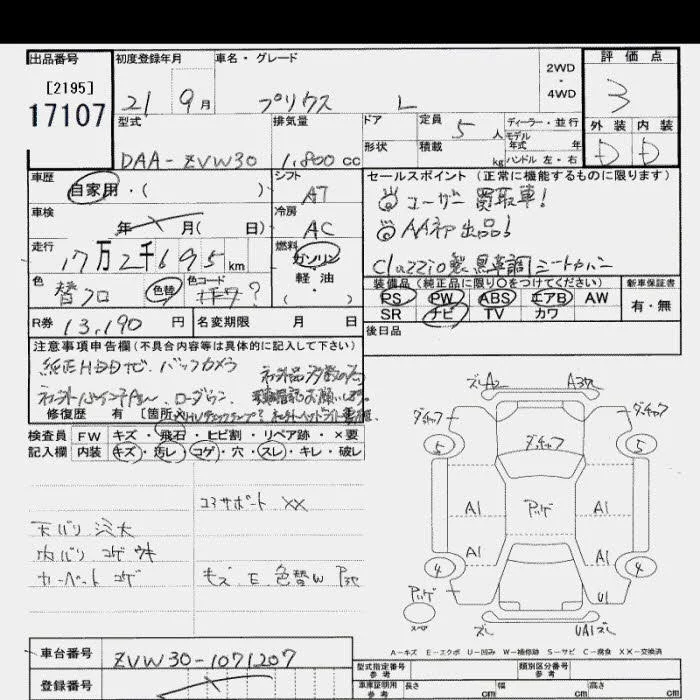 出品番号
[2195]
17107
初度登録年月
21 9月
車名・グレード
プリウス L
2WD
・
4WD
評価点
3
外装 内装
D D
型式
DAA-ZVW30
排気量
1,800 cc
ドア
形状
定員 5 人
積載 kg
ディーラー・並行
モデル
年式 年
ハンドル 左・右
車歴
自家用・( )
シフト
AT
車検
年 月( 日)
冷房
AC
走行
17万2千695 km
燃料
ガソリン
・
軽油
・
( )
色
替クロ
色替
色コード
?
R券 13,190 円
名変期限 月 日
セールスポイント(正常に機能するものに限ります)
◎ユーザー買取車!
◎AA初出品!
Clazzio製 黒革調シートカバー
装備品(純正品に限り○をつけてください)
PS PW ABS エアB AW
SR ナビ TV カワ
新車保証書
有・無
後日品
注意事項申告欄(不具合内容等は具体的に記入して下さい)
純正HDDナビ バックカメラ
ローダウン
修復歴 有 [箇所
検査員
記入欄
FW キズ・飛石・ヒビ割・リペア跡・×要
内装 キズ・汚レ・コゲ・穴・スレ・キレ・破レ
コアサポート XX
天バリ
内バリ コゲ ウキ
カーペット コゲ
キズ E 色替W Pヌケ
ズレA2
A3
ダキャフ
ダキャフ
ダキャフ
5
5
A1
A1
A1
A1
4
4
U1
スペア
ズレ
UA1ズレ
A-キズ E-エクボ U-凹み W-補修跡 S-サビ C-腐食 XX-交換済
車台番号
ZVW30-1071207
登録番号
型式指定番号
参考
類別区分番号
参考
車庫証明用
参考
長さ cm
幅 cm
高さ cm